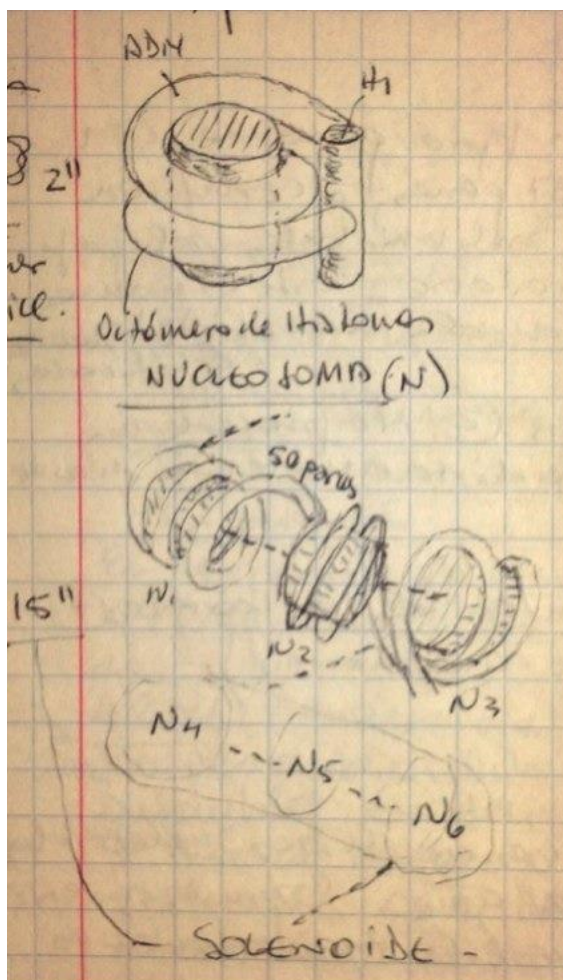 ADN
H1
2"
Octómero de Histonas
NUCLEOSOMA (N)
50 pares
N1
15"
N2
N3
N4
N5
N6
SOLENOIDE -